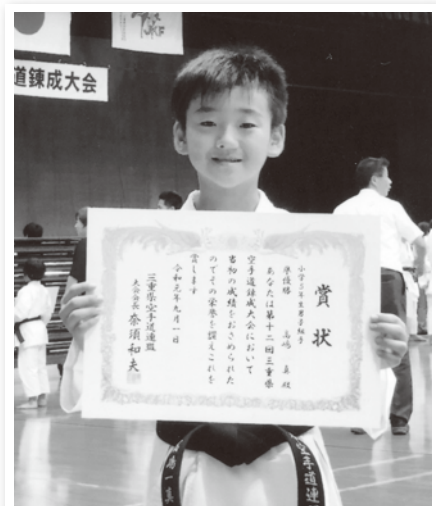 道錬成大会
賞状
小学5年生男子組手
準優勝
あなたは第十二回三重県
空手道錬成大会において
首初の成績をおさめられた
のでその栄誉を讃えこれを
賞します
令和元年九月一日
三重県空手道連盟
大会会長 奈須和夫
空手道連